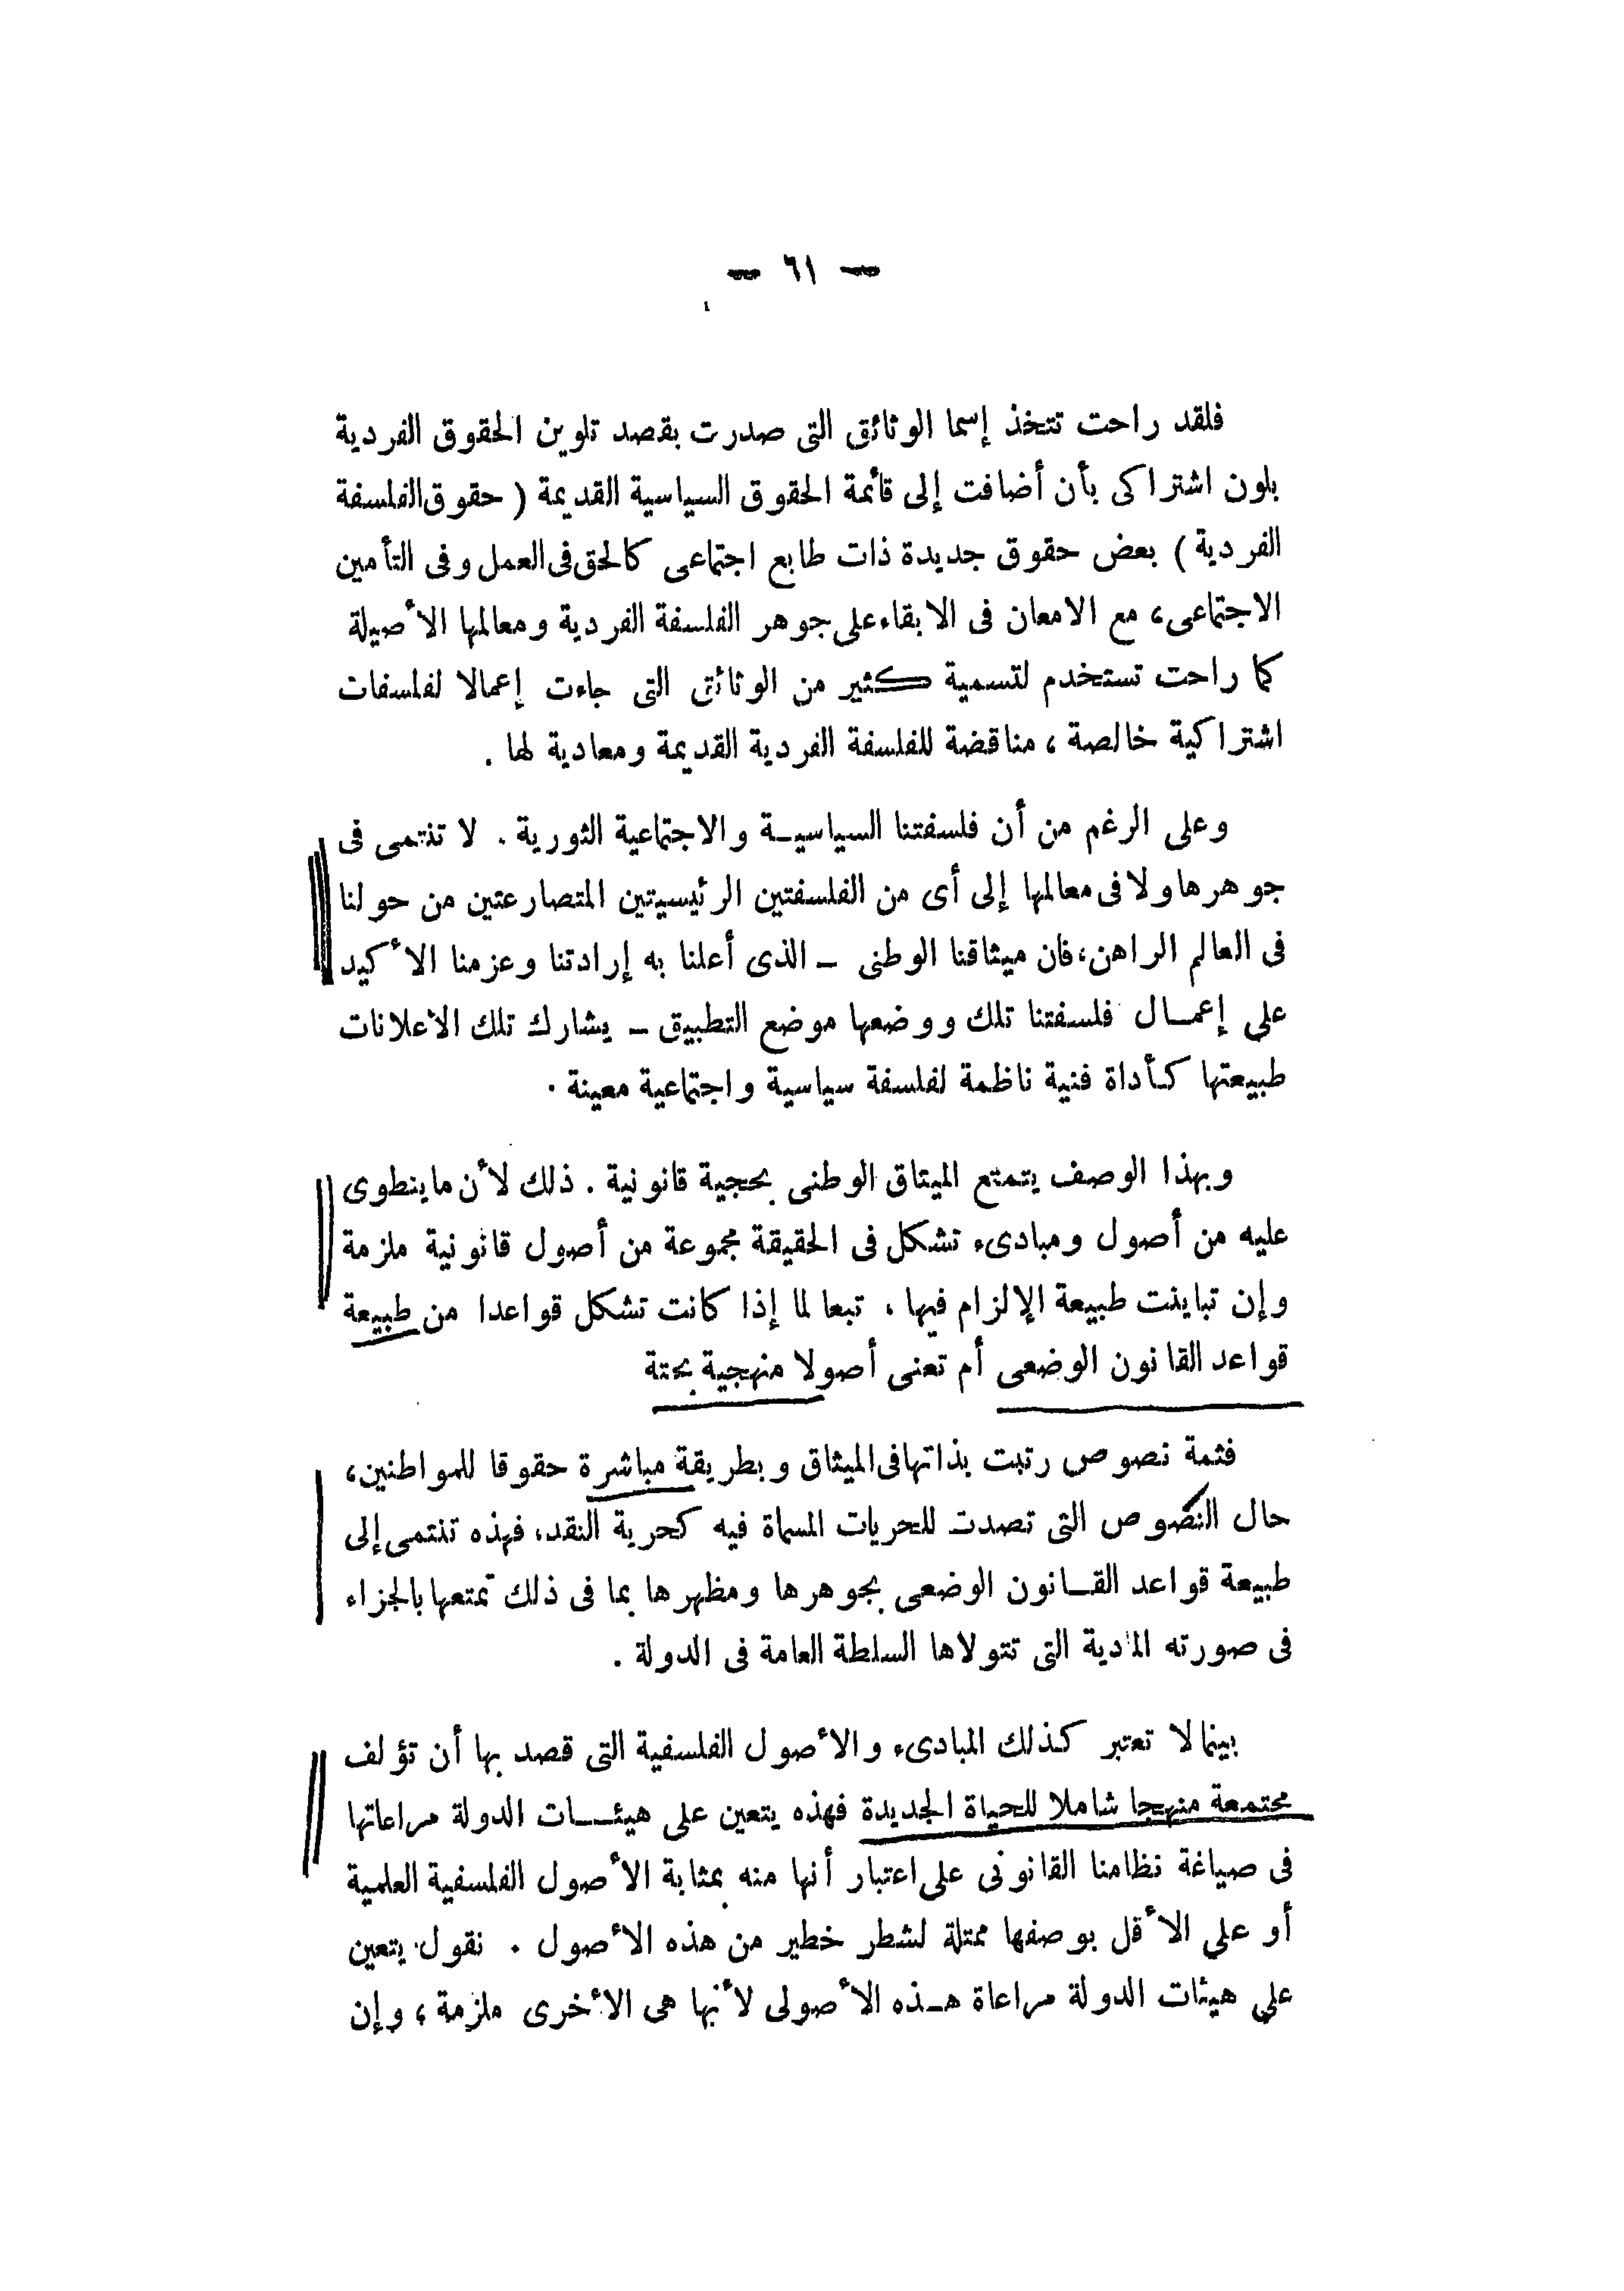 — ٦١ —
فلقد راحت تتخذ إسما الوثائق التى صدرت بقصد تلوين الحقوق الفردية
بلون اشتراكى بأن أضافت إلى قائمة الحقوق السياسية القديمة ( حقوق الفلسفة
الفردية ) بعض حقوق جديدة ذات طابع اجتماعى كالحق فى العمل وفى التأمين
الاجتماعى، مع الامعان فى الابقاء على جوهر الفلسفة الفردية ومعالمها الأصيلة
كما راحت تستخدم لتسمية كثير من الوثائق التى جاءت إعمالا لفلسفات
اشتراكية خالصة ، مناقضة للفلسفة الفردية القديمة ومعادية لها .
وعلى الرغم من أن فلسفتنا السياسية والاجتماعية الثورية . لا تنتمى فى
جوهرها ولا فى معالمها إلى أى من الفلسفتين الرئيسيتين المتصارعتين من حولنا
فى العالم الراهن، فان ميثاقنا الوطنى – الذى أعلنا به إرادتنا وعزمنا الأكيد
على إعمال فلسفتنا تلك ووضعها موضع التطبيق – يشارك تلك الاعلانات
طبيعتها كأداة فنية ناظمة لفلسفة سياسية واجتماعية معينة .
وبهذا الوصف يتمتع الميثاق الوطنى بحجية قانونية . ذلك لأن ما ينطوى
عليه من أصول ومبادىء تشكل فى الحقيقة مجموعة من أصول قانونية ملزمة
وإن تباينت طبيعة الإلزام فيها ، تبعا لما إذا كانت تشكل قواعدا من طبيعة
قواعد القانون الوضعى أم تعنى أصولا منهجية بحتة
فثمة نصوص رتبت بذاتها فى الميثاق وبطريقة مباشرة حقوقا للمواطنين،
حال النصوص التى تصدت للحريات المسماة فيه كحرية النقد، فهذه تنتمى إلى
طبيعة قواعد القانون الوضعى بجوهرها ومظهرها بما فى ذلك تمتعها بالجزاء
فى صورته المادية التى تتولاها السلطة العامة فى الدولة .
بينما لا تعتبر كذلك المبادىء والأصول الفلسفية التى قصد بها أن تؤلف
مجتمعة منهجا شاملا للحياة الجديدة فهذه يتعين على هيئات الدولة مراعاتها
فى صياغة نظامنا القانونى على اعتبار أنها منه بمثابة الأصول الفلسفية العلمية
أو على الأقل بوصفها ممثلة لشطر خطير من هذه الأصول . نقول يتعين
على هيئات الدولة مراعاة هذه الأصولى لأنها هى الأخرى ملزمة ، وإن